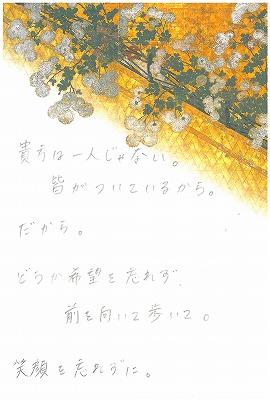 貴方は一人じゃない。
皆がついているから。
だから。
どうか希望を忘れず、
前を向いて歩いて。
笑顔を忘れずに。